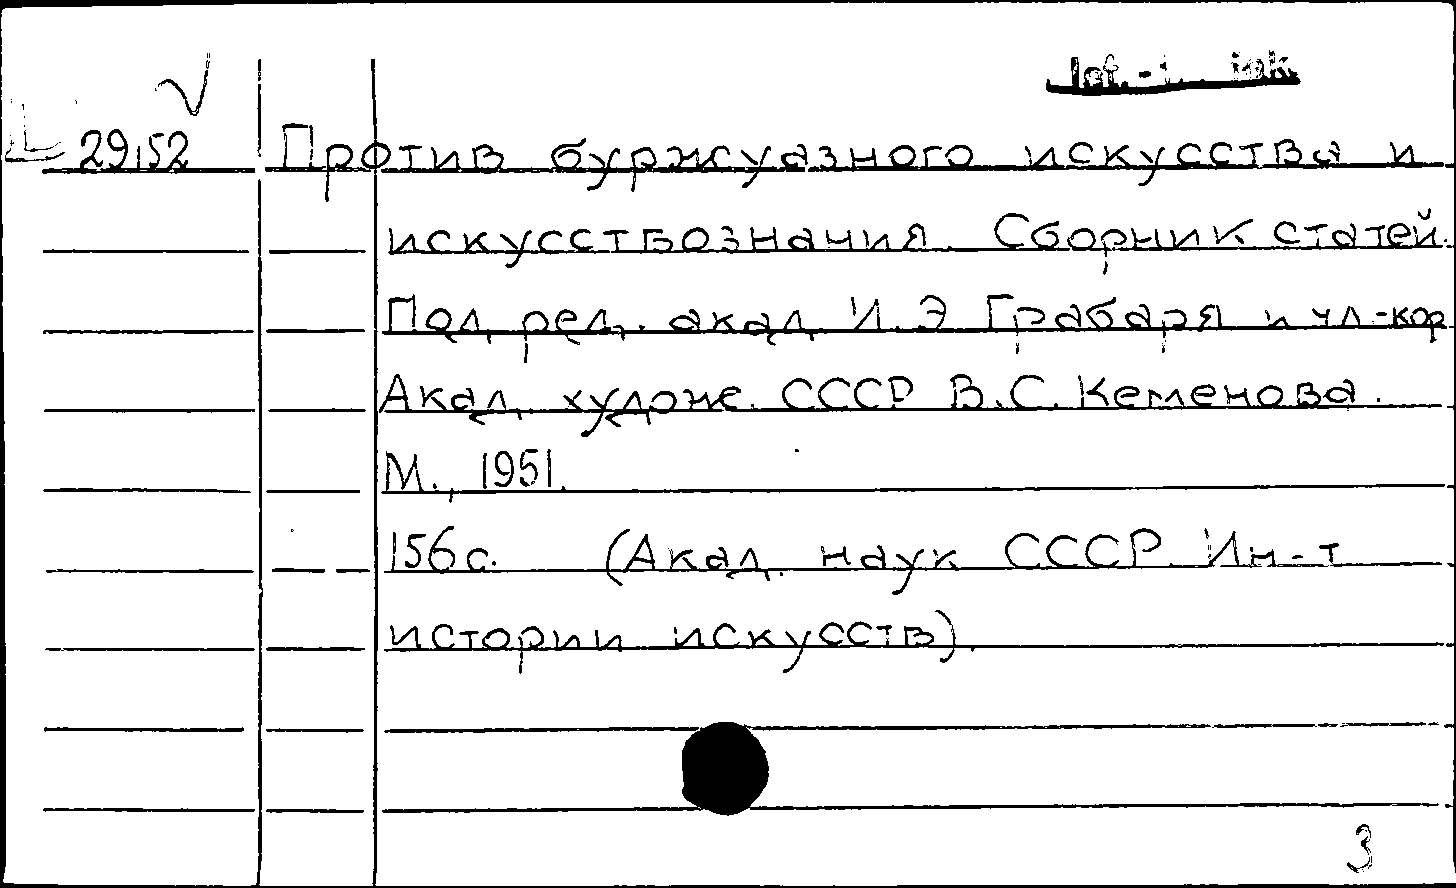 29152 Против буржуазного искусства и
искусствознания. Сборник статей.
Под ред. акад. И.Э Грабаря и чл.-кор.
Акад. худож. СССР В.С. Кеменова.
М., 1951.
156 с. (Акад. наук СССР. Ин-т
истории искусств).
3